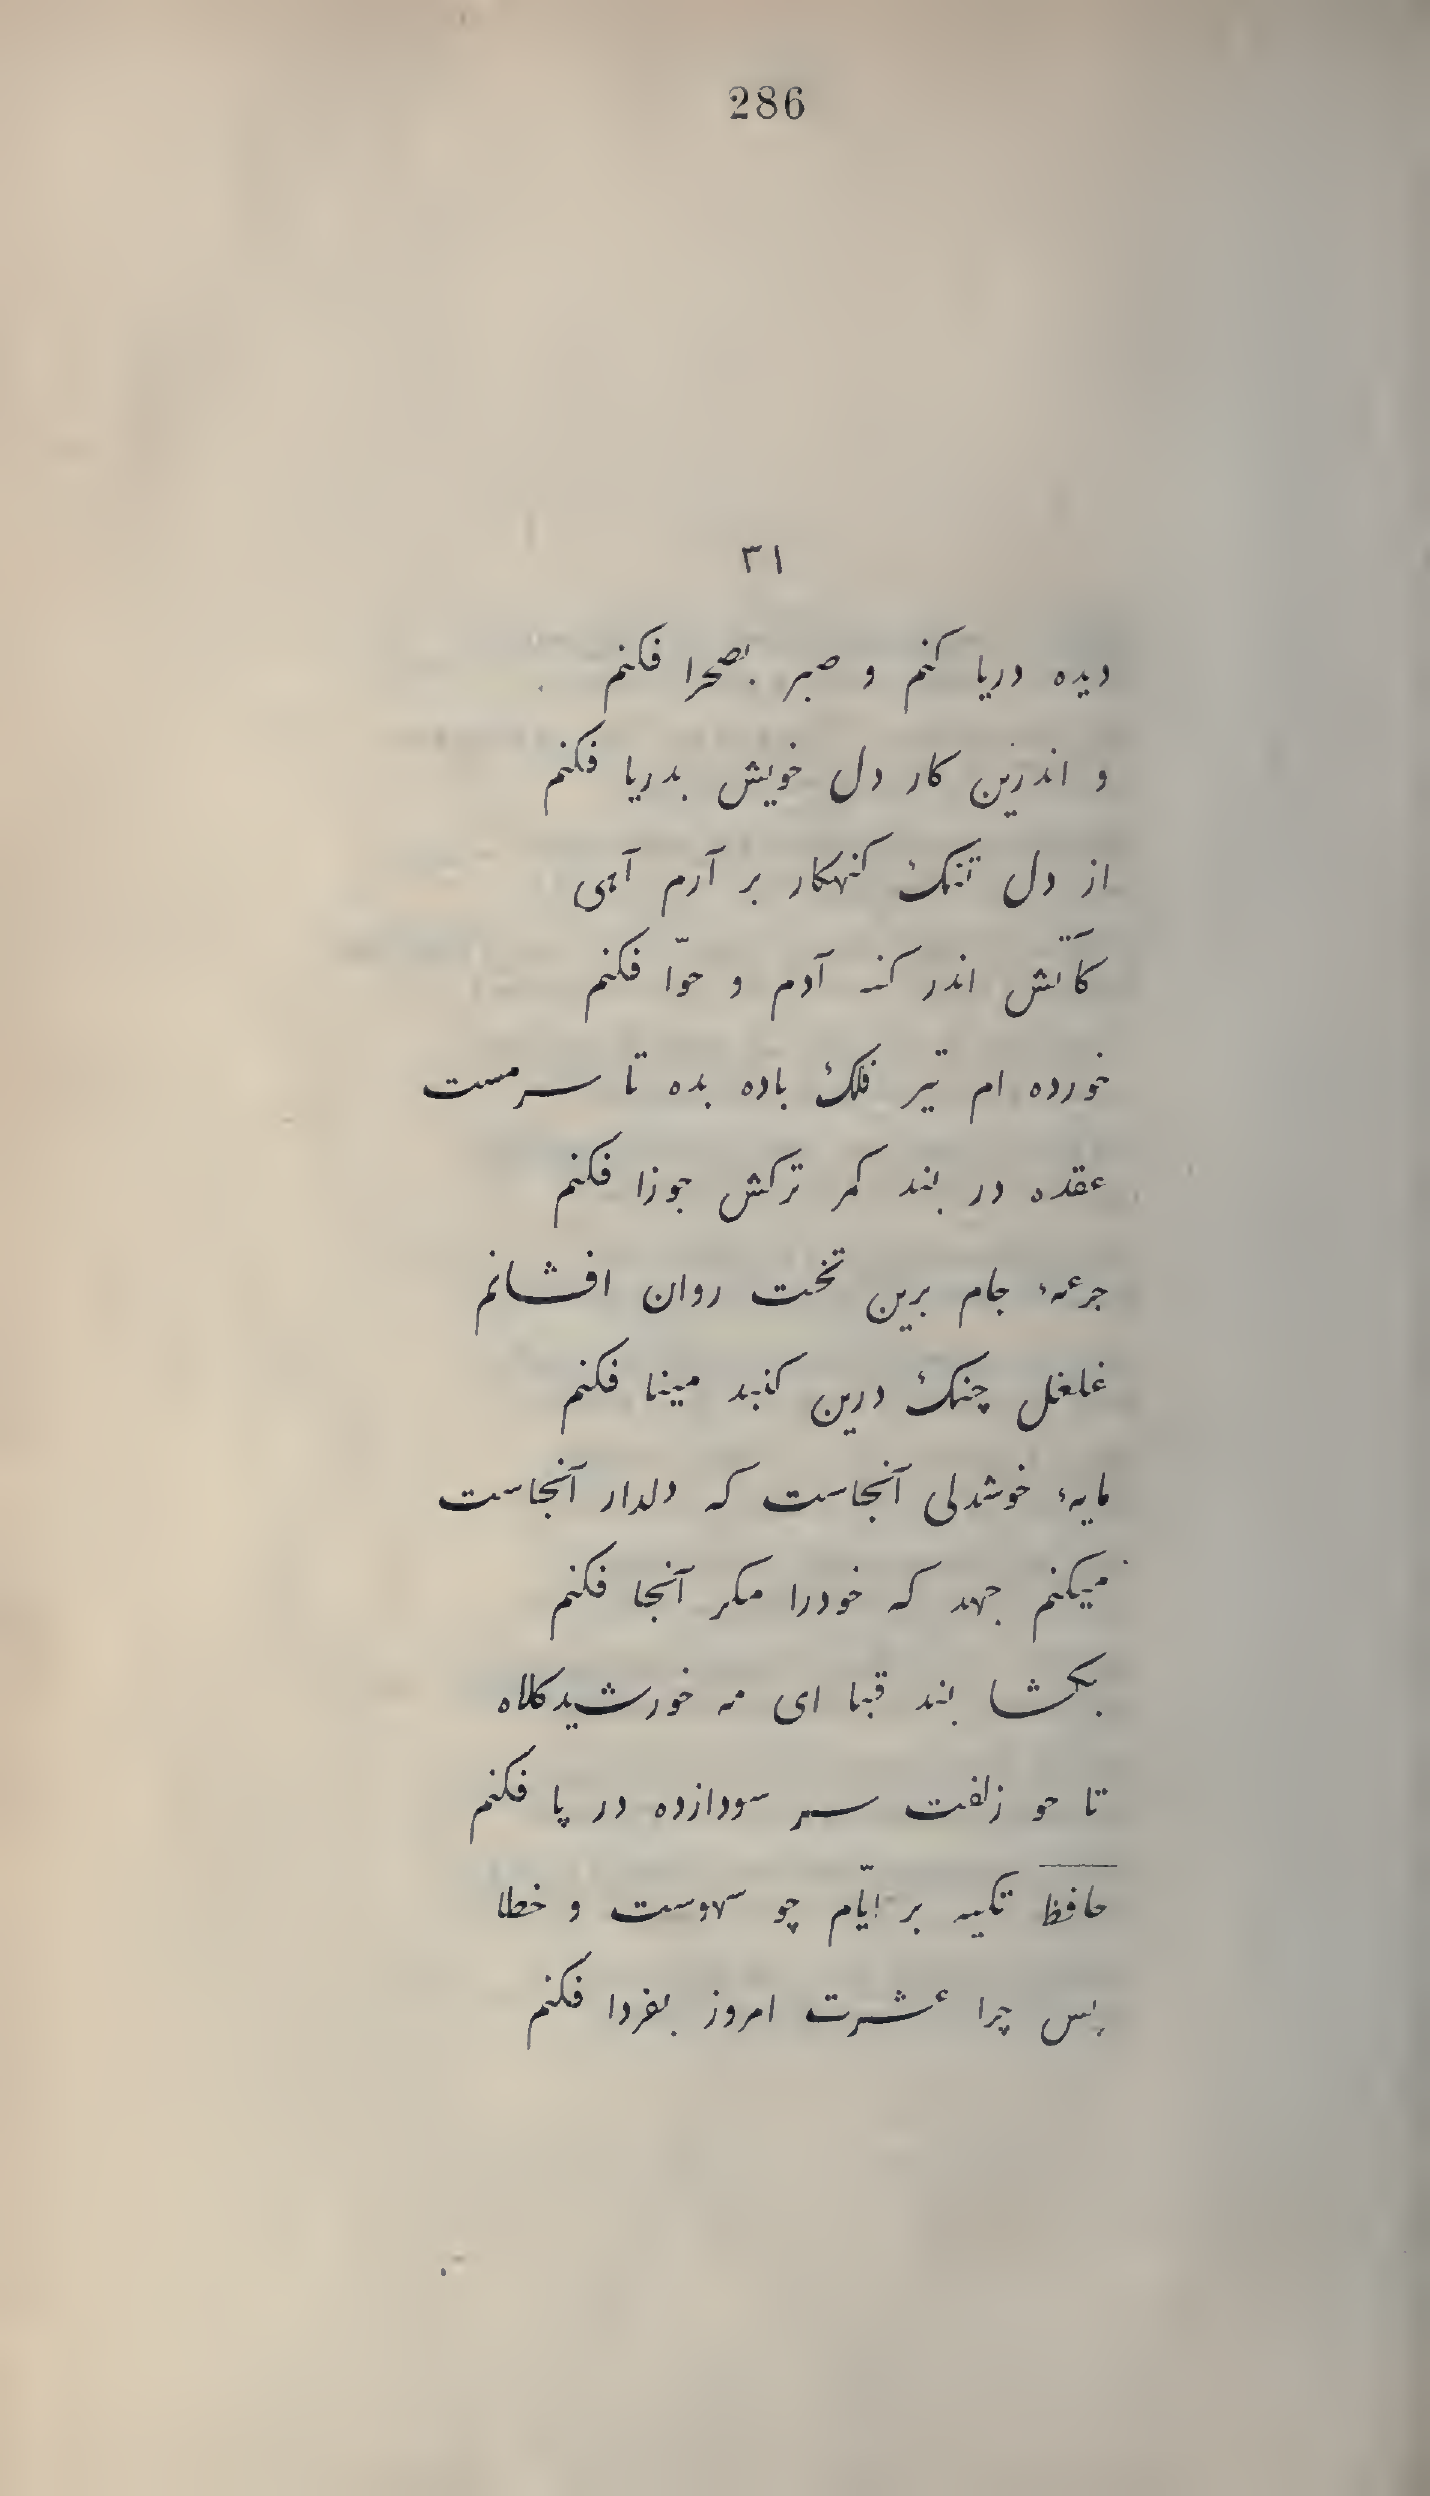 286
٣١
دیده دریا کنم و صبر بصحرا فکنم
و اندرین کار دل خویش بدریا فکنم
از دل تنک کنهکار بر آرم آهی
کآتش اندر کنه آدم و حوّا فکنم
خورده ام تیر فلک باده بده تا سرمست
عقده در بند کمر ترکش جوزا فکنم
جرعهٔ جام برین تخت روان افشانم
غلغل چنک درین کنبد مینا فکنم
مایهٔ خوشدلی آنجاست که دلدار آنجاست
میکنم جهد که خودرا مکر آنجا فکنم
بکشا بند قبا ای مه خورشیدکلاه
تا چو زلفت سر سودازده در پا فکنم
حافظ تکیه بر ایّام چو سهوست و خطا
پس چرا عشرت امروز بفردا فکنم